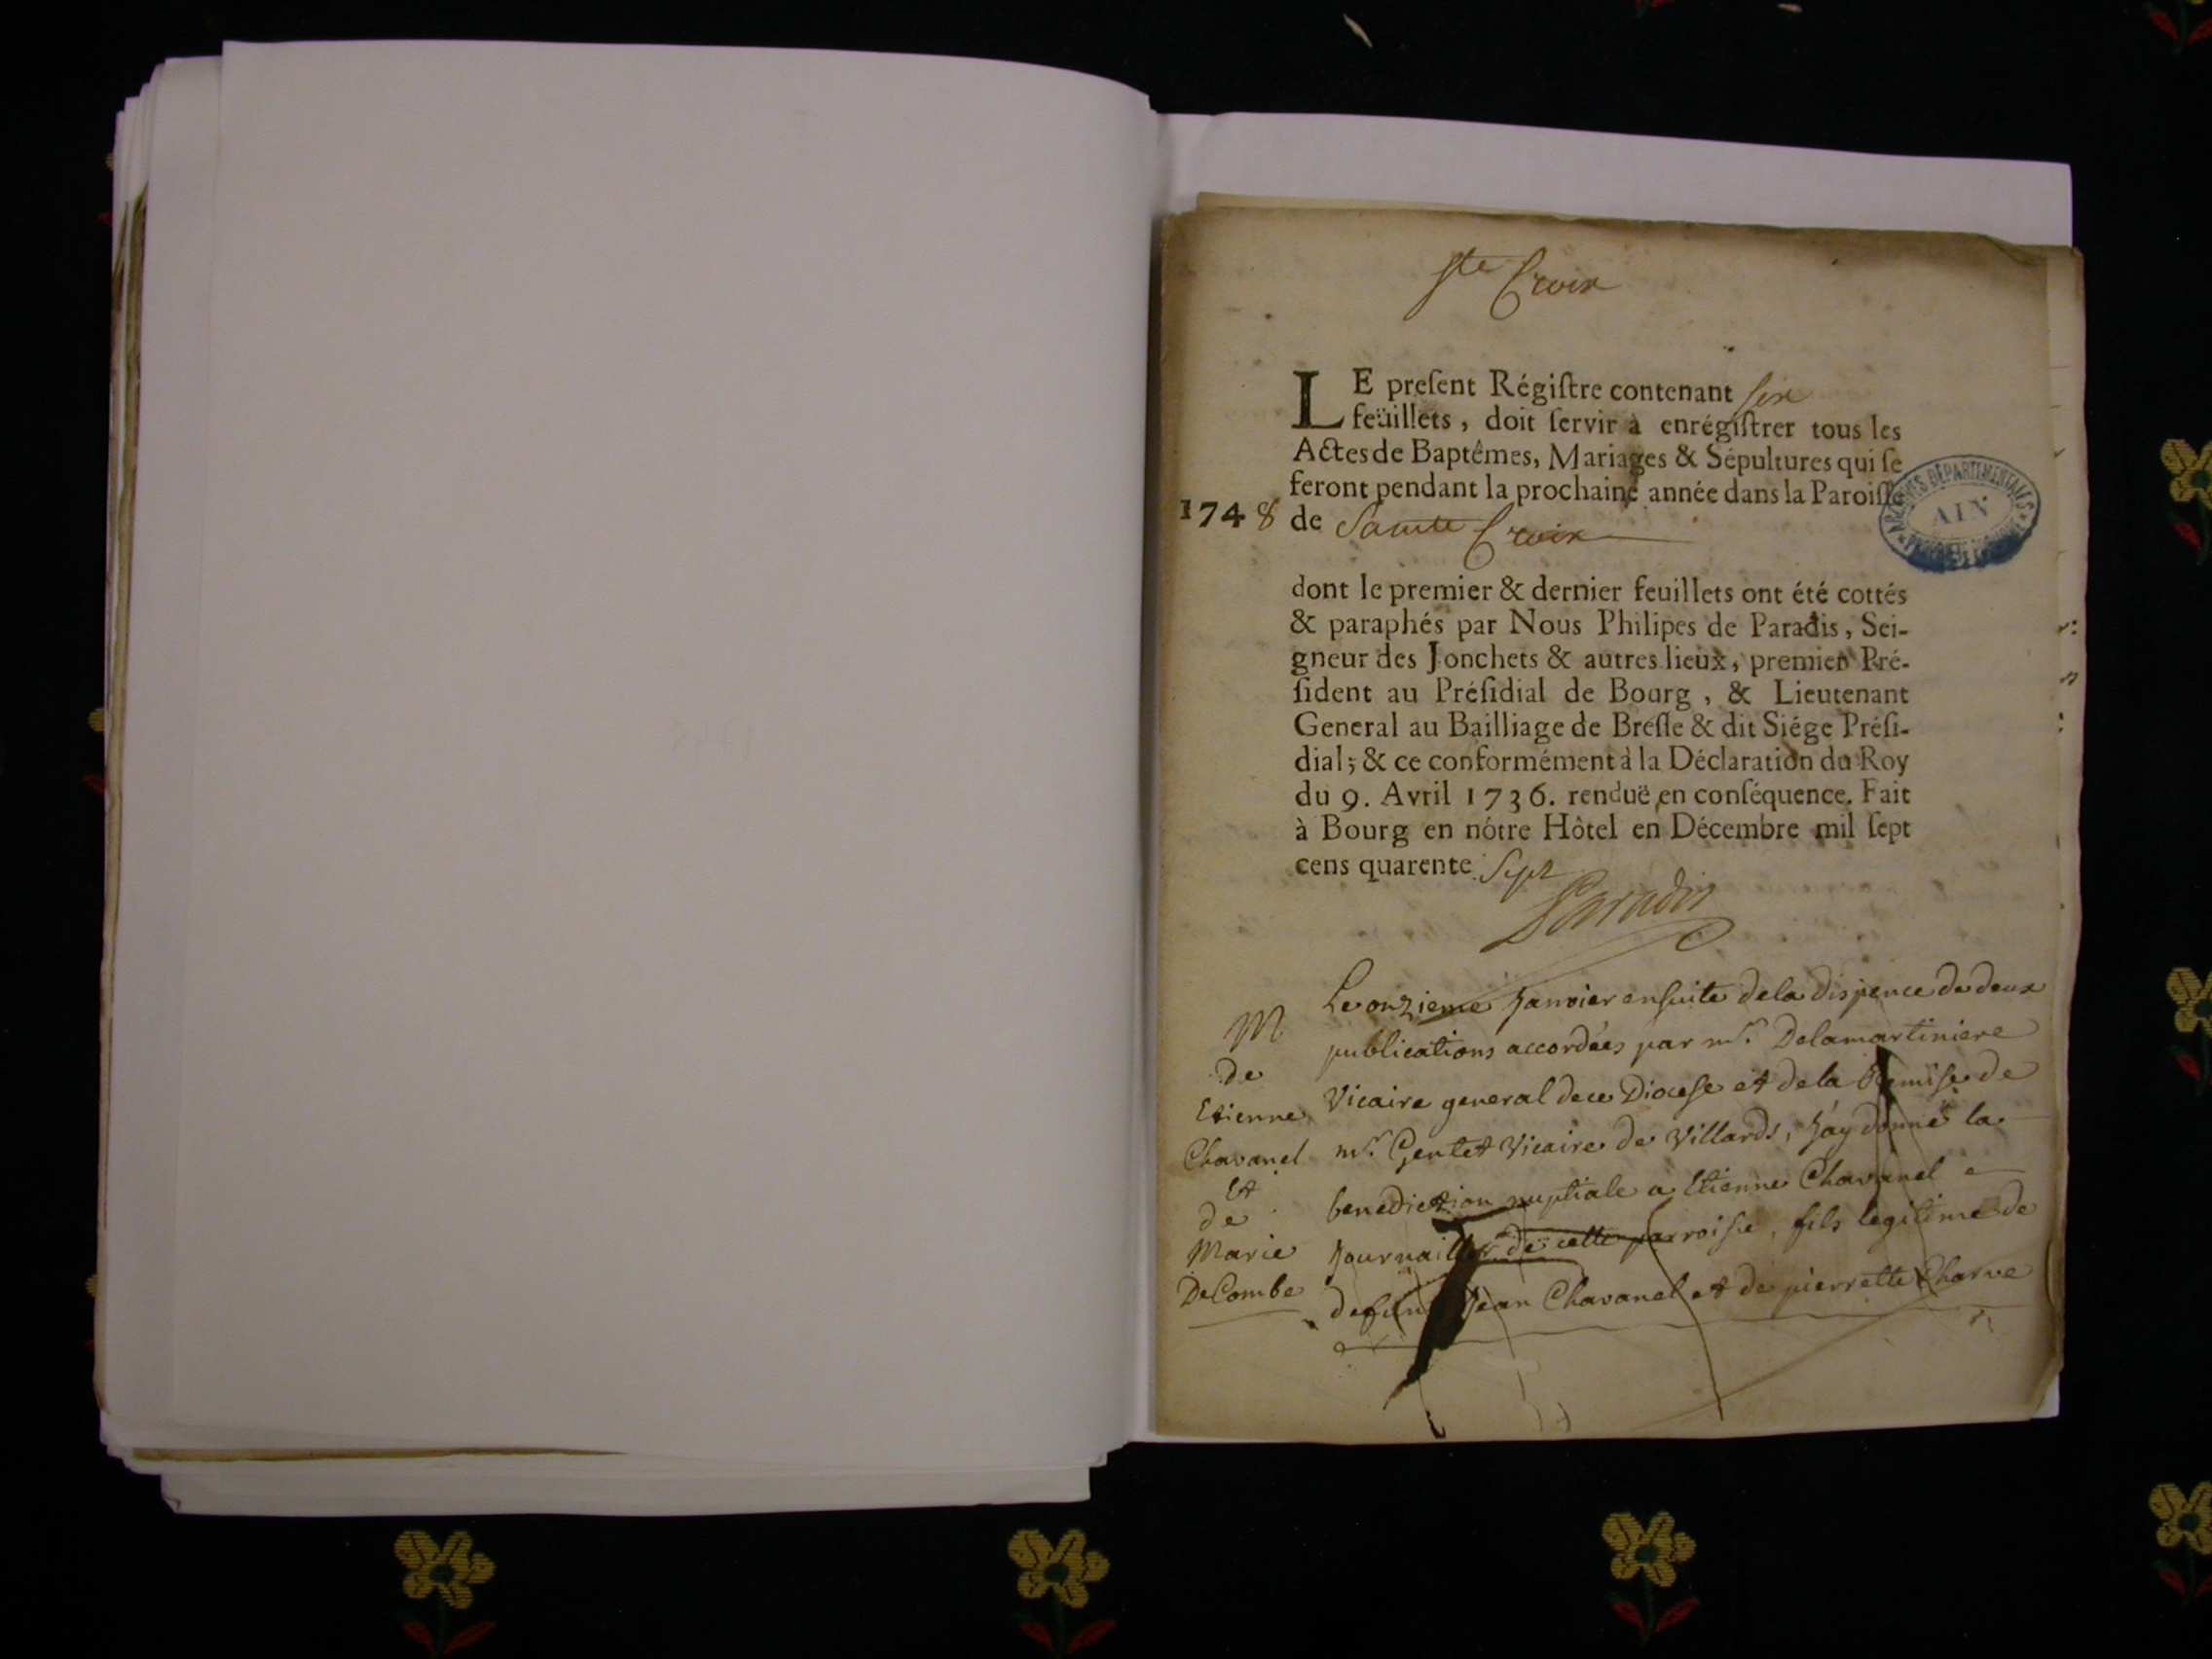 Ste Croix
LE preſent Régiſtre contenant six
feüillets, doit ſervir à enrégiſtrer tous les
Actes de Baptêmes, Mariages & Sépultures qui ſe
feront pendant la prochaine année dans la Paroiſſe
1748 de Sainte Croix
ARCHIVES DÉPARTEMENTALES
AIN
dont le premier & dernier feuillets ont été cottés
& paraphés par Nous Philipes de Paradis, Sei-
gneur des Jonchets & autres lieux, premier Pré-
ſident au Préſidial de Bourg, & Lieutenant
General au Bailliage de Breſſe & dit Siége Préſi-
dial; & ce conformément à la Déclaration du Roy
du 9. Avril 1736. renduë en conſéquence. Fait
à Bourg en nôtre Hôtel en Décembre mil ſept
cens quarente Sept
Paradis
M
de
Etienne
Chavanel
Et
de
Marie
DeCombe
Le onzieme Janvier ensuite dela dispence de deux
publications accordées par mr. Delamartiniere
Vicaire general de ce Diocese et dela Remise de
mr. Gentet Vicaire de Villards, J'ay donné la
benediction nuptiale a Etienne Chavanel
Journailler de cette parroisse, fils legitime de
defunt Jean Chavanel et de pierrette Charve